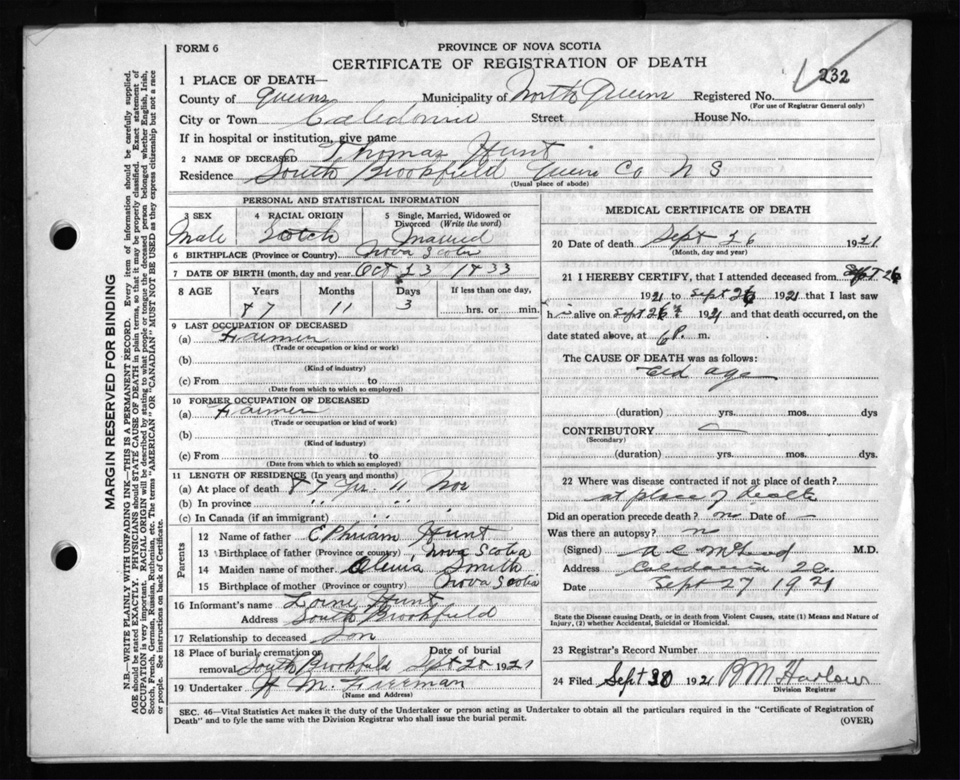 FORM 6
PROVINCE OF NOVA SCOTIA
CERTIFICATE OF REGISTRATION OF DEATH
232
1 PLACE OF DEATH—
County of Queens Municipality of North Queens Registered No.
(For use of Registrar General only)
City or Town Caledonia Street House No.
If in hospital or institution, give name
2 NAME OF DECEASED Thomas Hunt
Residence South Brookfield Queens Co N S
(Usual place of abode)
PERSONAL AND STATISTICAL INFORMATION
3 SEX 4 RACIAL ORIGIN 5 Single, Married, Widowed or Divorced (Write the word)
Male Scotch Married
6 BIRTHPLACE (Province or Country) Nova Scotia
7 DATE OF BIRTH (month, day and year) Oct 23 1833
8 AGE Years Months Days If less than one day,
87 11 3 hrs. or min.
9 LAST OCCUPATION OF DECEASED
(a) Farmer
(Trade or occupation or kind of work)
(b)
(Kind of industry)
(c) From to
(Date from which to which so employed)
10 FORMER OCCUPATION OF DECEASED
(a) Farmer
(Trade or occupation or kind of work)
(b)
(Kind of industry)
(c) From to
(Date from which to which so employed)
11 LENGTH OF RESIDENCE (In years and months)
(a) At place of death 87 yrs. 11
(b) In province " " "
(c) In Canada (if an immigrant) " " "
Parents
12 Name of father Ephriam Hunt
13 Birthplace of father (Province or country) Nova Scotia
14 Maiden name of mother Smith
15 Birthplace of mother (Province or country) Nova Scotia
16 Informant's name Hunt
Address South Brookfield
17 Relationship to deceased Son
18 Place of burial, cremation or removal Date of burial
South Brookfield Sept 28 1921
19 Undertaker H M Freeman
(Name and Address)
MEDICAL CERTIFICATE OF DEATH
20 Date of death Sept 26 1921
(Month, day and year)
21 I HEREBY CERTIFY, that I attended deceased from Sept 26
1921 to Sept 26 1921 that I last saw
h im alive on Sept 26 1921 and that death occurred, on the
date stated above, at 6 P. m.
The CAUSE OF DEATH was as follows:
Old age
(duration) yrs. mos. dys
CONTRIBUTORY —
(Secondary)
(duration) yrs. mos. dys.
22 Where was disease contracted if not at place of death?
at place of death
Did an operation precede death? no Date of —
Was there an autopsy? no
(Signed) A C McLeod M.D.
Address Caledonia
Date Sept 27 1921
State the Disease causing Death, or in death from Violent Causes, state (1) Means and Nature of
Injury, (2) whether Accidental, Suicidal or Homicidal.
23 Registrar's Record Number
24 Filed Sept 30 1921 B M Harlow
Division Registrar
SEC. 46—Vital Statistics Act makes it the duty of the Undertaker or person acting as Undertaker to obtain all the particulars required in the "Certificate of Registration of
Death" and to fyle the same with the Division Registrar who shall issue the burial permit.
(OVER)
MARGIN RESERVED FOR BINDING
N.B.—WRITE PLAINLY WITH UNFADING INK—THIS IS A PERMANENT RECORD. Every item of information should be carefully supplied.
AGE should be stated EXACTLY. PHYSICIANS should STATE CAUSE OF DEATH in plain terms, so that it may be properly classified. Exact statement of
OCCUPATION is very important. RACIAL ORIGIN will be described by stating to what people or tongue the deceased person belonged whether English, Irish,
Scotch, French, German, Russian, Ruthenian, etc. The terms "AMERICAN" OR "CANADIAN" MUST NOT BE USED as they express citizenship but not a race
or people. See instructions on back of Certificate.